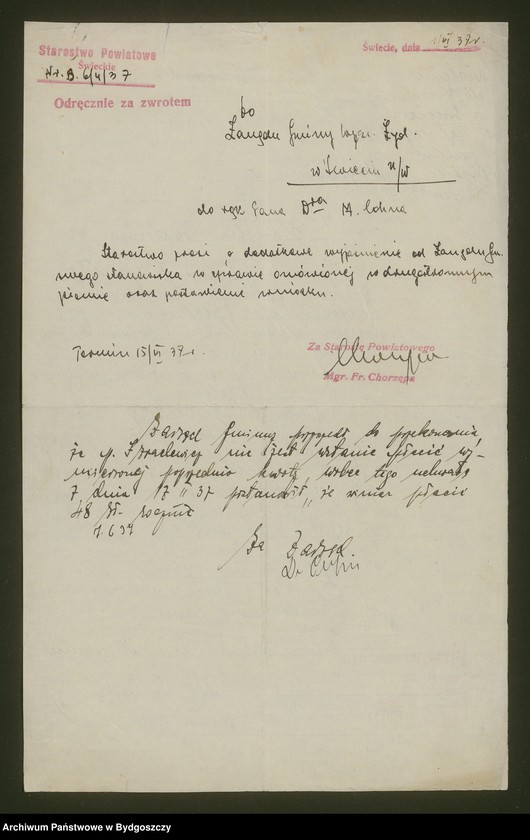 Starostwo Powiatowe
Świeckie
Nr. B. 6/4/37
Odręcznie za zwrotem
Świecie, dnia 1/VI 37 r.
do
Zarządu Gminy Wyzn. Żyd.
w Świeciu n/W
do rąk Pana Dra A. Cohna
Starostwo prosi o dodatkowe wyjaśnienie od Zarządu
stanowiska w sprawie omówionej w drugostronnym
piśmie oraz postawienie wniosku.
Termin 15/VI 37 r.
Za Starostę Powiatowego
Mgr. Fr. Chorzępa
Zarząd Gminy przyszedł do przekonania,
że p. nie jest w stanie płacić wy-
mierzonej poprzednio kwoty, wobec tego uchwałą
z dnia 17 II 37 postanowił, że winien płacić
48 zł. rocznie
Za Zarząd
Dr
Archiwum Państwowe w Bydgoszczy